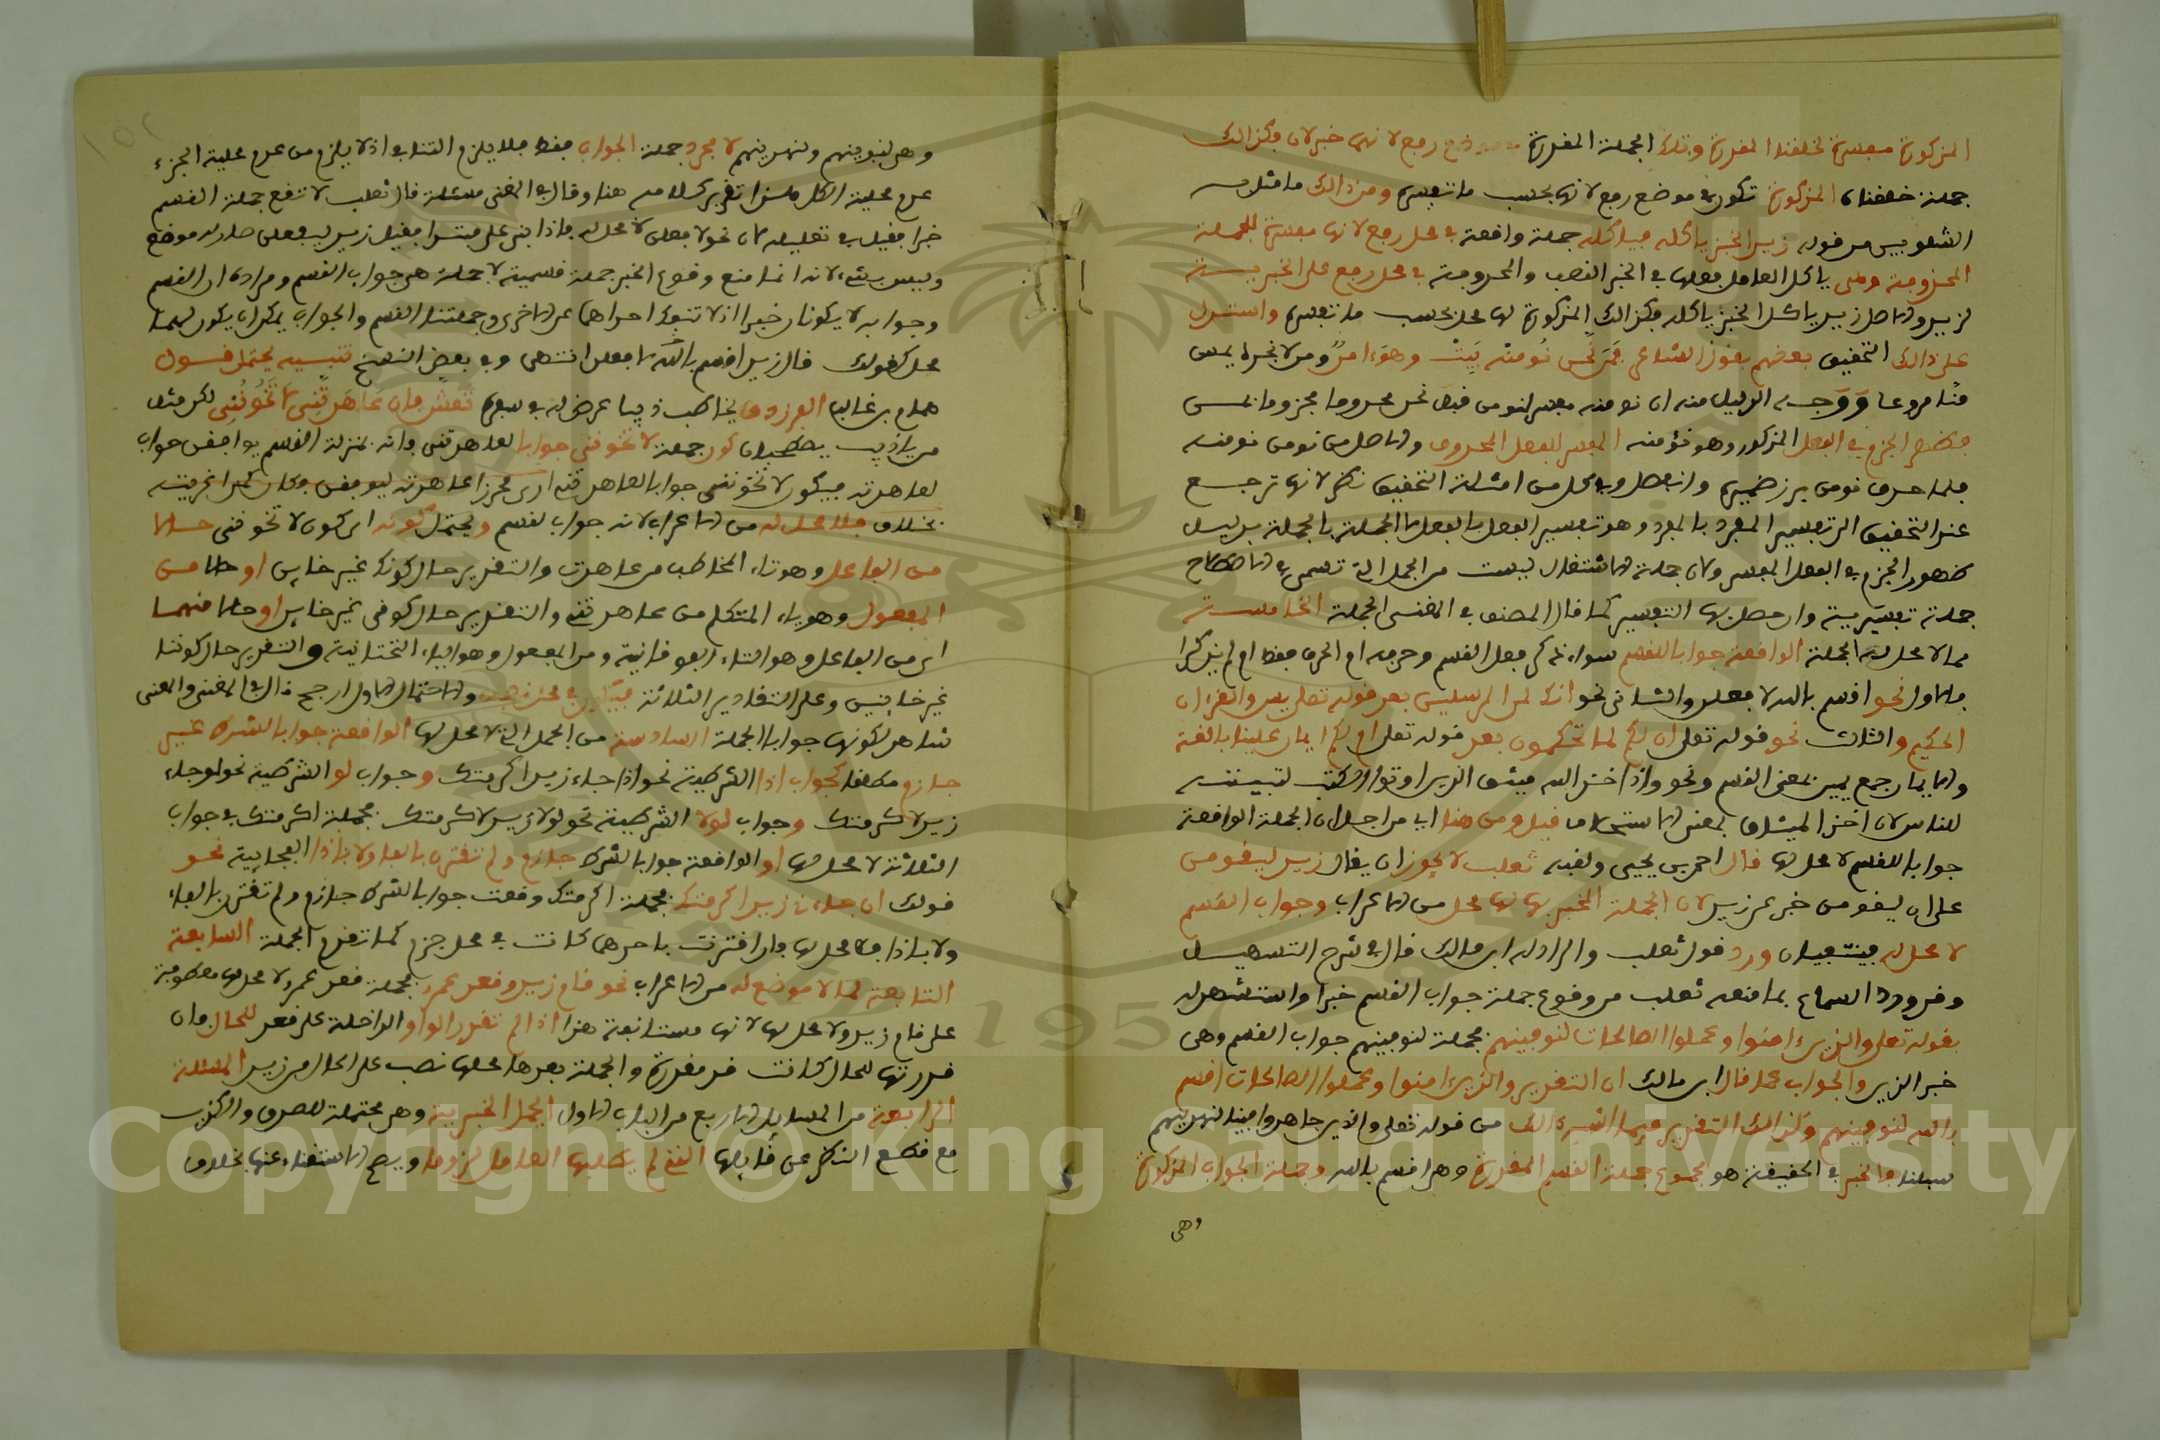 المذكورة مفسرة لخلقنا المقدرة وتلك الجملة المقدرة في موضع رفع لانها خبر لان فكذالك
جملة خلقناه المذكورة تكون في موضع رفع لانها بحسب ما تفسره ومن ذالك ما مثل به
الشلوبين من قوله زيد الخبز ياكله فياكله جملة واقعة في محل رفع لانها مفسرة للجملة
المحذوفة وهي ياكل العامل فعلها في الخبر النصب والمحذوفة في محل رفع على الخبرية
لزيد والاصل زيد ياكل الخبز ياكله فكذالك المذكورة لها محل بحسب ما تفسره واستدل
على ذالك التحقيق بعضهم بقول الشاعر فَمَن نَّحن نُومنه يَبِتْ وهوَ ءامنٌ ومن لا نجره يمس
منا مروعا وَوَجه الدليل منه ان نومنه مفسر لنومن قبل نحن محذوفا مجزوما بمن
فظهر الجزم في الفعل المذكور وهو نؤمنه المفسر للفعل المحذوف والاصل من نومن نومنه
فلما حذف نومن برز ضميره وانفصل وفي كل من امثلة التحقيق نظر لانها ترجع
عند التحقيق الى تفسير المفرد بالمفرد وهو تفسير الفعل بالفعل لا الجملة بالجملة بدليل
ظهور الجزم في الفعل المفسر ولان جملة الاشتغال ليست من الجمل التي تسمى في الاصطلاح
جملة تفسيرية وان حصل بها التفسير كما قال المصنف في المغني الجملة الخامسة
مما لا محل له الجملة الواقعة جوابا للقسم سواء ذكر فعل القسم وحرفه ام الحرف فقط ام لم يذكرا
فالاول نحو اقسم بالله لافعلن والثاني نحو انك لمن المرسلين بعد قوله تعلى يس والقرءان
الحكيم والثالث نحو قوله تعلى ان لكم لما تحكمون بعد قوله تعلى ام لكم ايمان علينا بالغة
والايمان جمع يمين بمعنى القسم ونحو واذ اخذ الله ميثق الذين اوتوا الكتب لتبيننه
للناس لان اخذ الميثاق بمعنى الاستحلاف قيل ومن هنا اي من اجل ان الجملة الواقعة
جوابا للقسم لا محل لها قال احمد بن يحيى ولقبه ثعلب لا يجوز ان يقال زيد ليقومن
على ان ليقومن خبر عن زيد لان الجملة المخبر بها لها محل من الاعراب وجواب القسم
لا محل له فيتنافيان ورد قول ثعلب والراد له ابن مالك قال في شرح التسهيل
وقد ورد السماع بما منعه ثعلب من وقوع جملة جواب القسم خبرا واستشهد له
بقوله تعلى والذين ءامنوا وعملوا الصالحات لنبوينهم فجملة لنبوينهم جواب القسم وهي
خبر الذين والجواب عما قال ابن مالك ان التقدير والذين ءامنوا وعملوا الصالحات اقسم
بالله لنبوينهم وكذالك التقدير فيما اشبه ذالك من قوله تعلى والذين جاهدوا فينا لنهدينهم
سبلنا فالخبر في الحقيقة هو مجموع جملة القسم المقدرة وهي اقسم بالله وجملة الجواب المذكورة
وهي
وهي لنبوينهم ولنهدينهم لا مجرد جملة الجواب فقط فلا يلزم التنافي اذ لا يلزم من عدم محلية الجزء
عدم محلية الكل هذا تقرير كلامه هنا وقال في المغني مسئلة قال ثعلب لا تقع جملة القسم
خبرا فقيل في تعليله لان نحو لافعلن لا محل له فاذا بنى على مبتدا فقيل زيد ليفعلن صار له موضع
وليس بشيء لانه انما منع وقوع الخبر جملة قسمية لا جملة هي جواب القسم ومراده ان القسم
وجوابه لا يكونان خبرا اذ لا تنفك احداهما عن الاخرى وجملتا القسم والجواب يمكن ان يكون لهما
محل كقولك قال زيد اقسم بالله لافعلن انتهى وفي بعض النسخ تنبيه يحتمل قول
همام بن غالب الفرزدق يخاطب ذيبا عرض له في سفره تعش فان عاهدتني لا تخونني نكن مثل
من ياذيب يصطحبان كون جملة لا تخونني جوابا لعاهدتني فانه بمنزلة القسم
لعاهدته فيكون لا تخونني جوابا لعاهدتني
فلا محل له من الاعراب لانه جواب لقسم ويحتمل كونه اي كون لا تخونني حالا
من الفاعل وهو تاء المخاطب من عاهدت والتقدير حال كونك غير خاين او حالا من
المفعول وهو ياء المتكلم من عاهدتني والتقدير حال كوني غير خاين او حالا منهما
اي من الفاعل وهو التاء الفوقانية ومن المفعول وهو الياء التحتانية والتقدير حال كوننا
غير خاينين وعلى التقادير الثلاثة فيكون في محل نصب والاحتمال الاول ارجح قال في المغني والمعنى
شاهد لكونها جوابا الجملة السادسة من الجمل التي لا محل لها الواقعة جوابا لشرط غير
جازم مطلقا كجواب اذا الشرطية نحو اذا جاء زيد اكرمتك وجواب لو الشرطية نحو لو جاء
زيد لاكرمتك وجواب لولا الشرطية نحو لولا زيد لاكرمتك فجملة اكرمتك في جواب
الثلاثة لا محل لها او الواقعة جوابا لشرط جازم ولم تقترن بالفاء ولا باذا الفجاية نحو
قولك ان جاءني زيد اكرمتك فجملة اكرمتك وقعت جوابا لشرط جازم ولم تقترن بالفاء
ولا باذا فلا محل لها وان اقترنت باحدهما كانت في محل جزم كما تقدم الجملة السابعة
التابعة لما لا موضع له من الاعراب نحو قام زيد وقعد عمرو فجملة قعد عمرو لا محل لها معطوفة
على قام زيد ولا محل لها لانها مستانفة هذا اذا لم تقدر الواو الداخلة على قعد للحال فان
قدرتها للحال كانت قد مقدرة والجملة بعدها محلها نصب على الحال من زيد المسئلة
الرابعة من المسايل الاربع من الباب الاول الجمل الخبرية وهي محتملة للصدق والكذب
مع قطع النظر عن قايلها التي لم يطلبها العامل لزوما ويصح الاستغناء عنها بخلاف
Copyright © King Saud University
1957